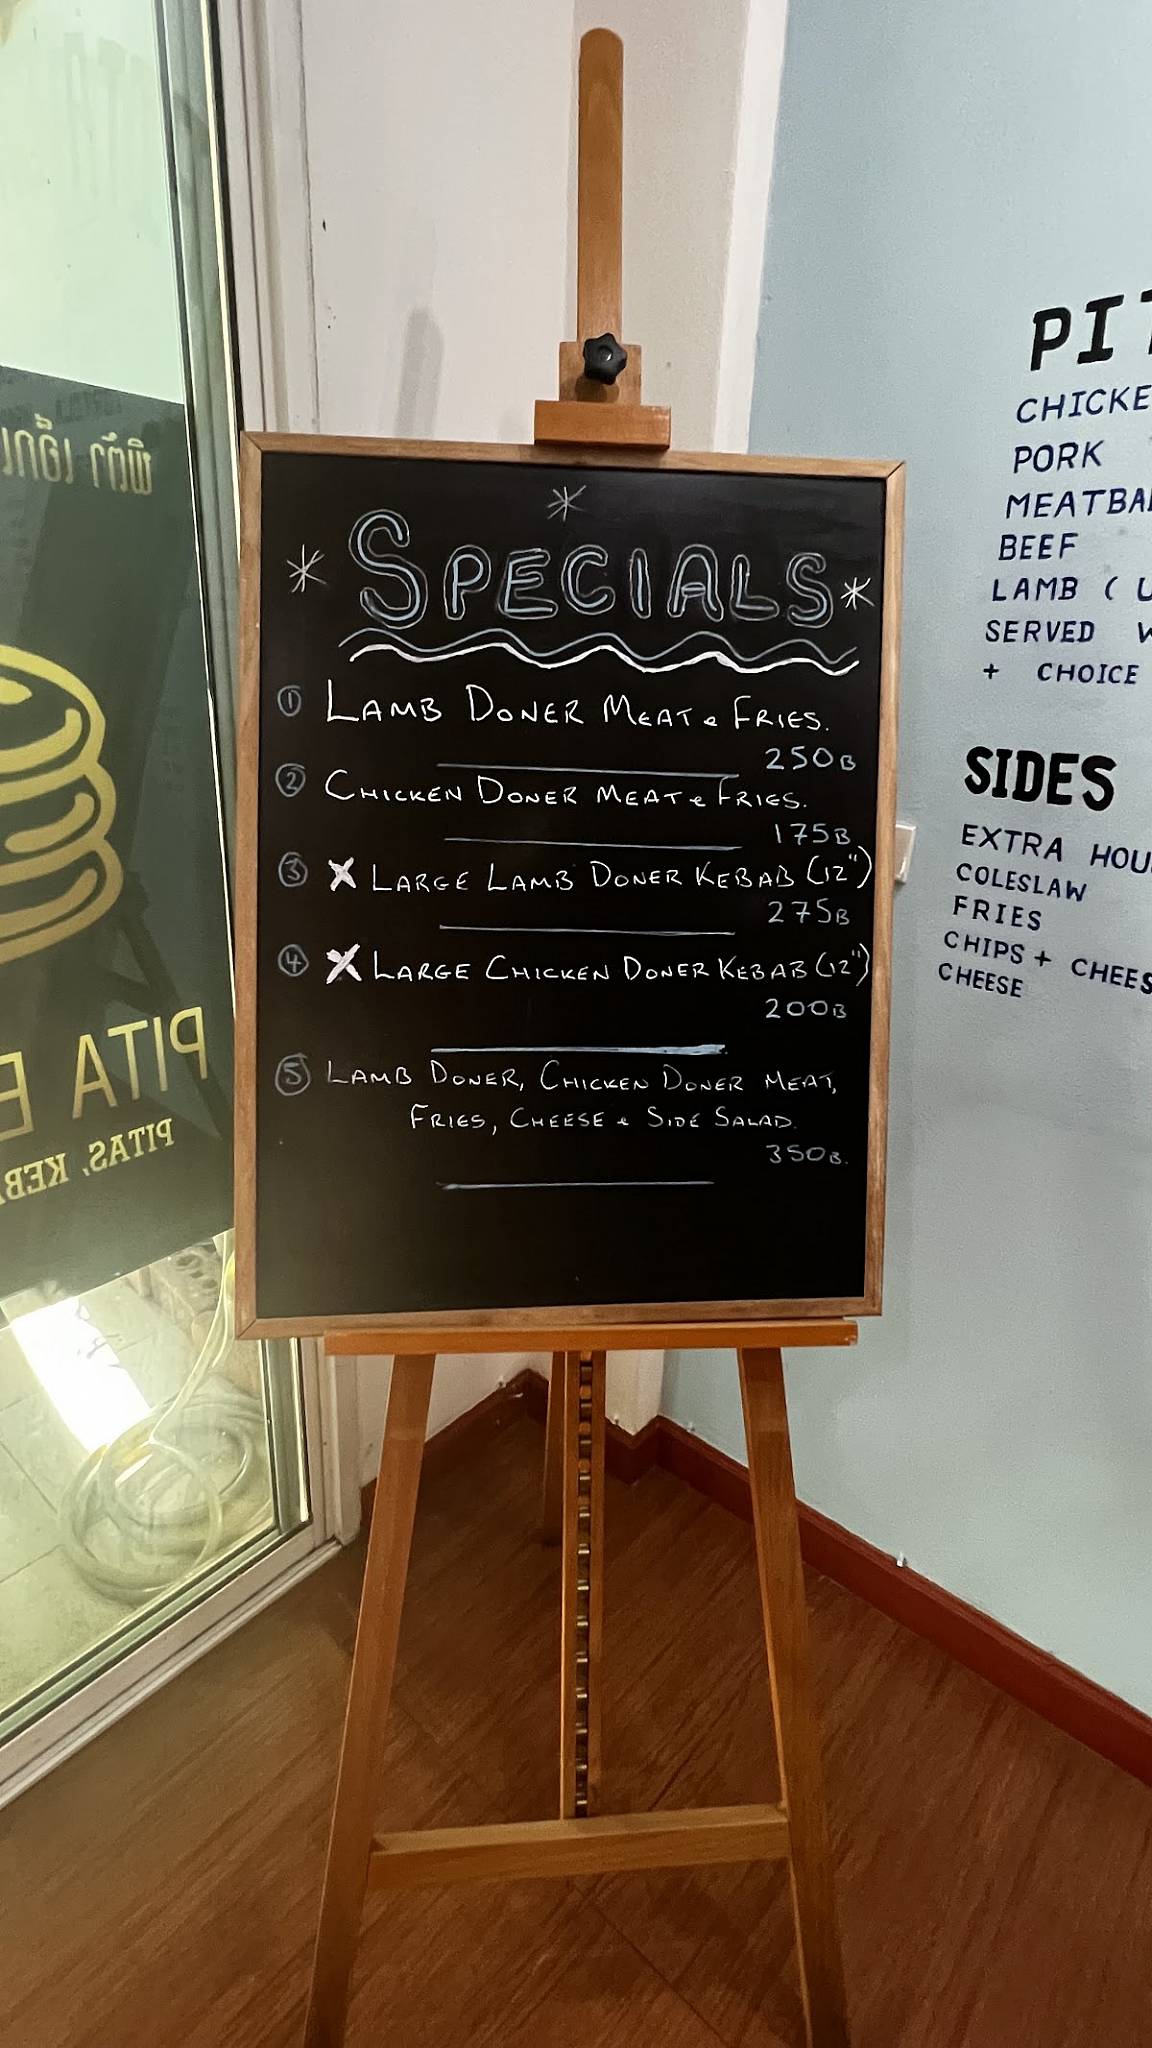 SPECIALS
① LAMB DONER MEAT & FRIES.
250B
② CHICKEN DONER MEAT & FRIES.
175B
③ X LARGE LAMB DONER KEBAB (12")
275B
④ X LARGE CHICKEN DONER KEBAB (12")
200B
⑤ LAMB DONER, CHICKEN DONER MEAT,
FRIES, CHEESE & SIDE SALAD.
350B.
PI
CHICKE
PORK
MEATBA
BEEF
LAMB ( U
SERVED W
+ CHOICE
SIDES
EXTRA HOU
COLESLAW
FRIES
CHIPS + CHEES
CHEESE
พิต้า เอ็ก
PITA E
PITAS, KEBA